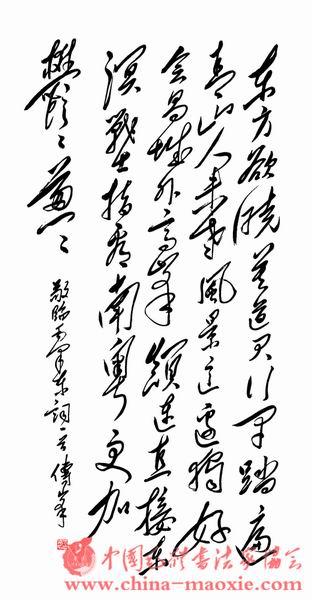 东方欲晓莫道君行早踏遍
青山人未老風景这邊獨好
会昌城外高峰顛连直接东
溟戰士指看南粤更加
鬱〻葱〻
敬臨毛泽东詞一首
中国毛体书法家协会
www.china-maoxie.com